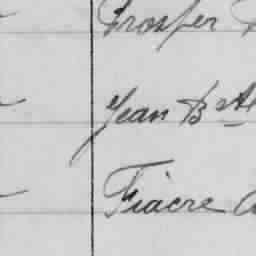 Prosper
Jean Bte
Fiacre